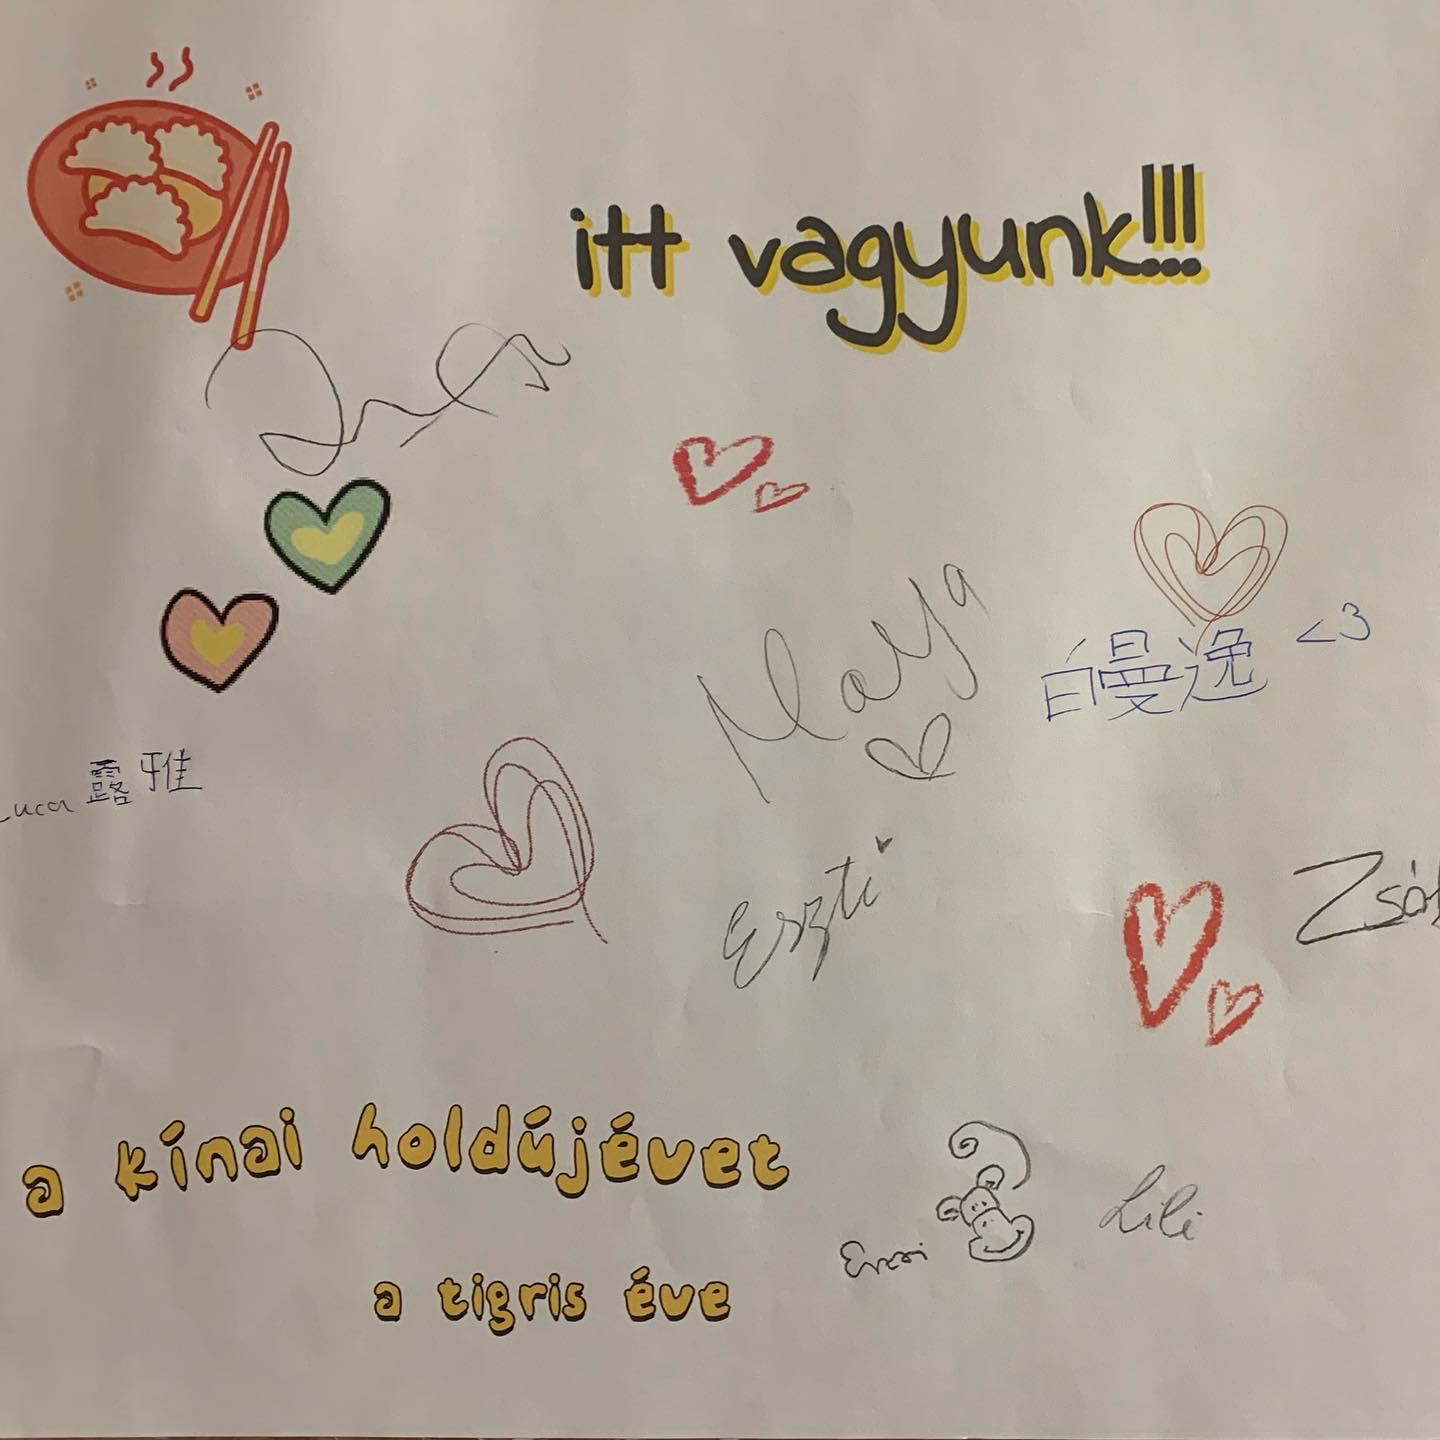 itt vagyunk!!!
Maya
白曼逸 <3
Luca 露雅
Eszti
a kínai holdújévet
Lili
a tigris éve